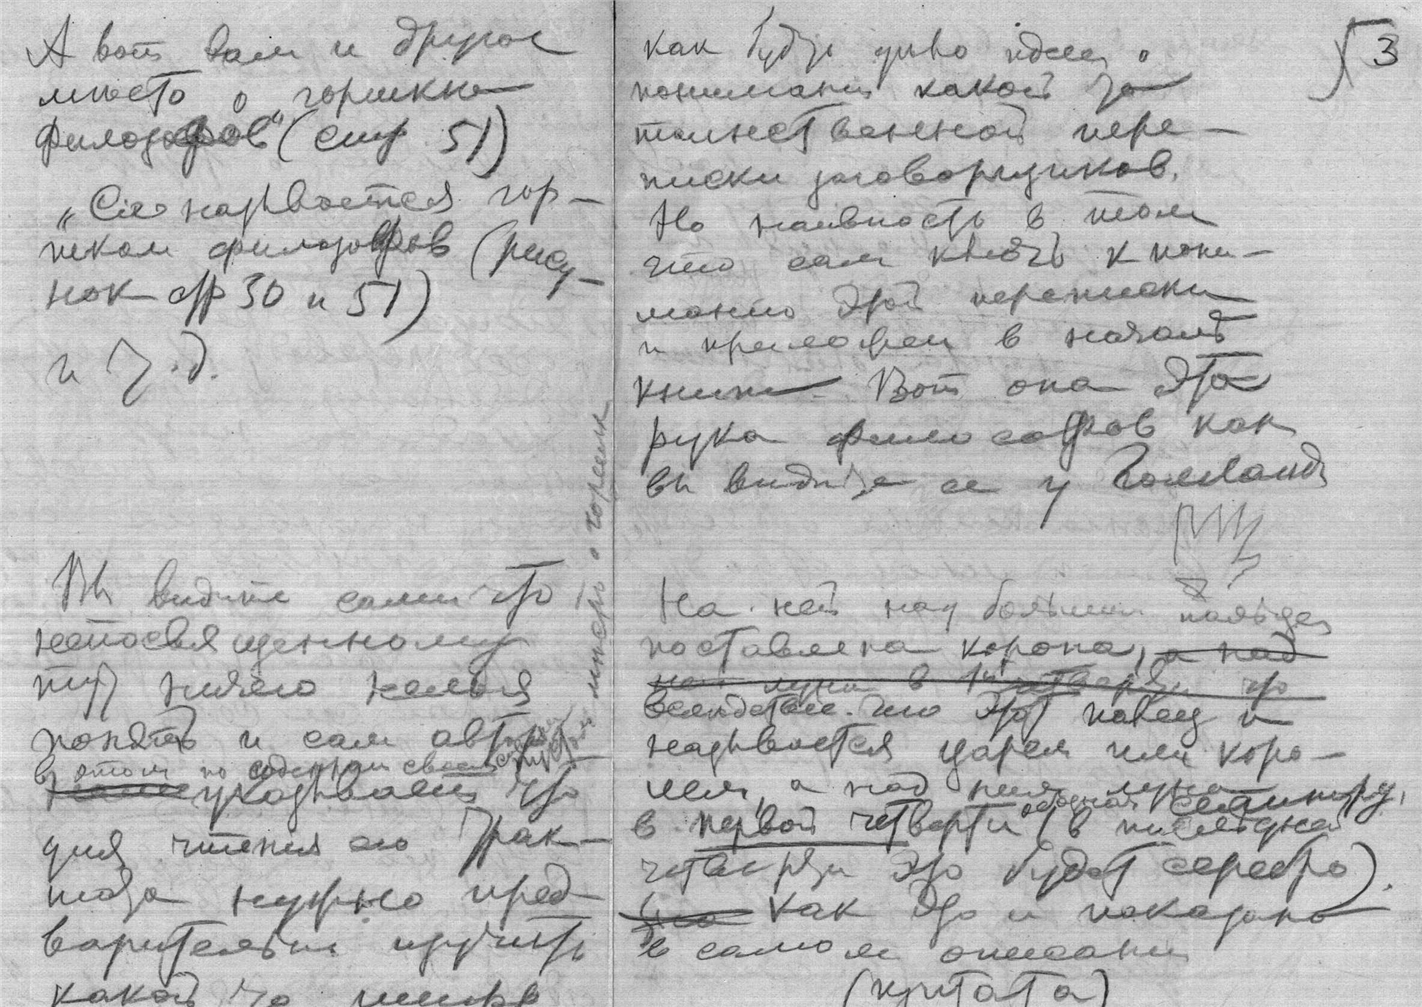 А вот вам и другое
место о „горшкѣ
философов“ (стр 51)
„Сие называется гор-
шком философов (рису-
нок стр 30 и 51)
и т.д.
Вы видите сами что
непосвященному
тут ничего нельзя
понять и сам автор
в этом по своем
указывает что
для чтения его трак-
тата нужно пред-
варительно изучить
какой то шифр
теперь о горшке
3
как будто дело идет о
понимании какой то
таинственной пере-
писки заговорщиков.
Но наивность в том
что сам ключ к пони-
манию этой переписки
и приложен в началѣ
книги. Вот она эта
рука философов как
вы видите ее у Голланда
На ней над большим пальцем
поставлена корона, а над
ним луна в 1й четверти что
вследствие. что этот палец и
называется царем или коро-
лем, а над ним луна
в первой четверти (в последней
четверти это будет серебро).
Как это и показано
в самом описании
(цитата)